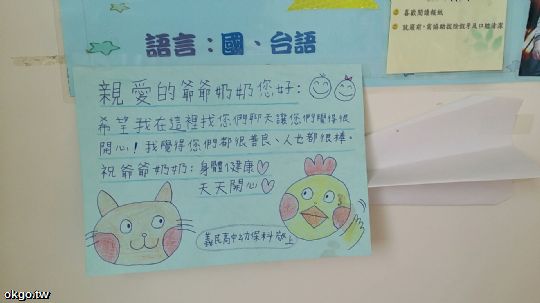 喜歡閱讀報紙
就寢前，需協助拔除假牙及口腔清潔
語言：國、台語
親愛的爺爺奶奶您好：
希望我在這裡找您們聊天讓您們覺得很
開心！我覺得您們都很善良、人也都很棒。
祝爺爺奶奶：身體健康♡
天天開心♡
義民高中幼保科敬上
okgo.tw